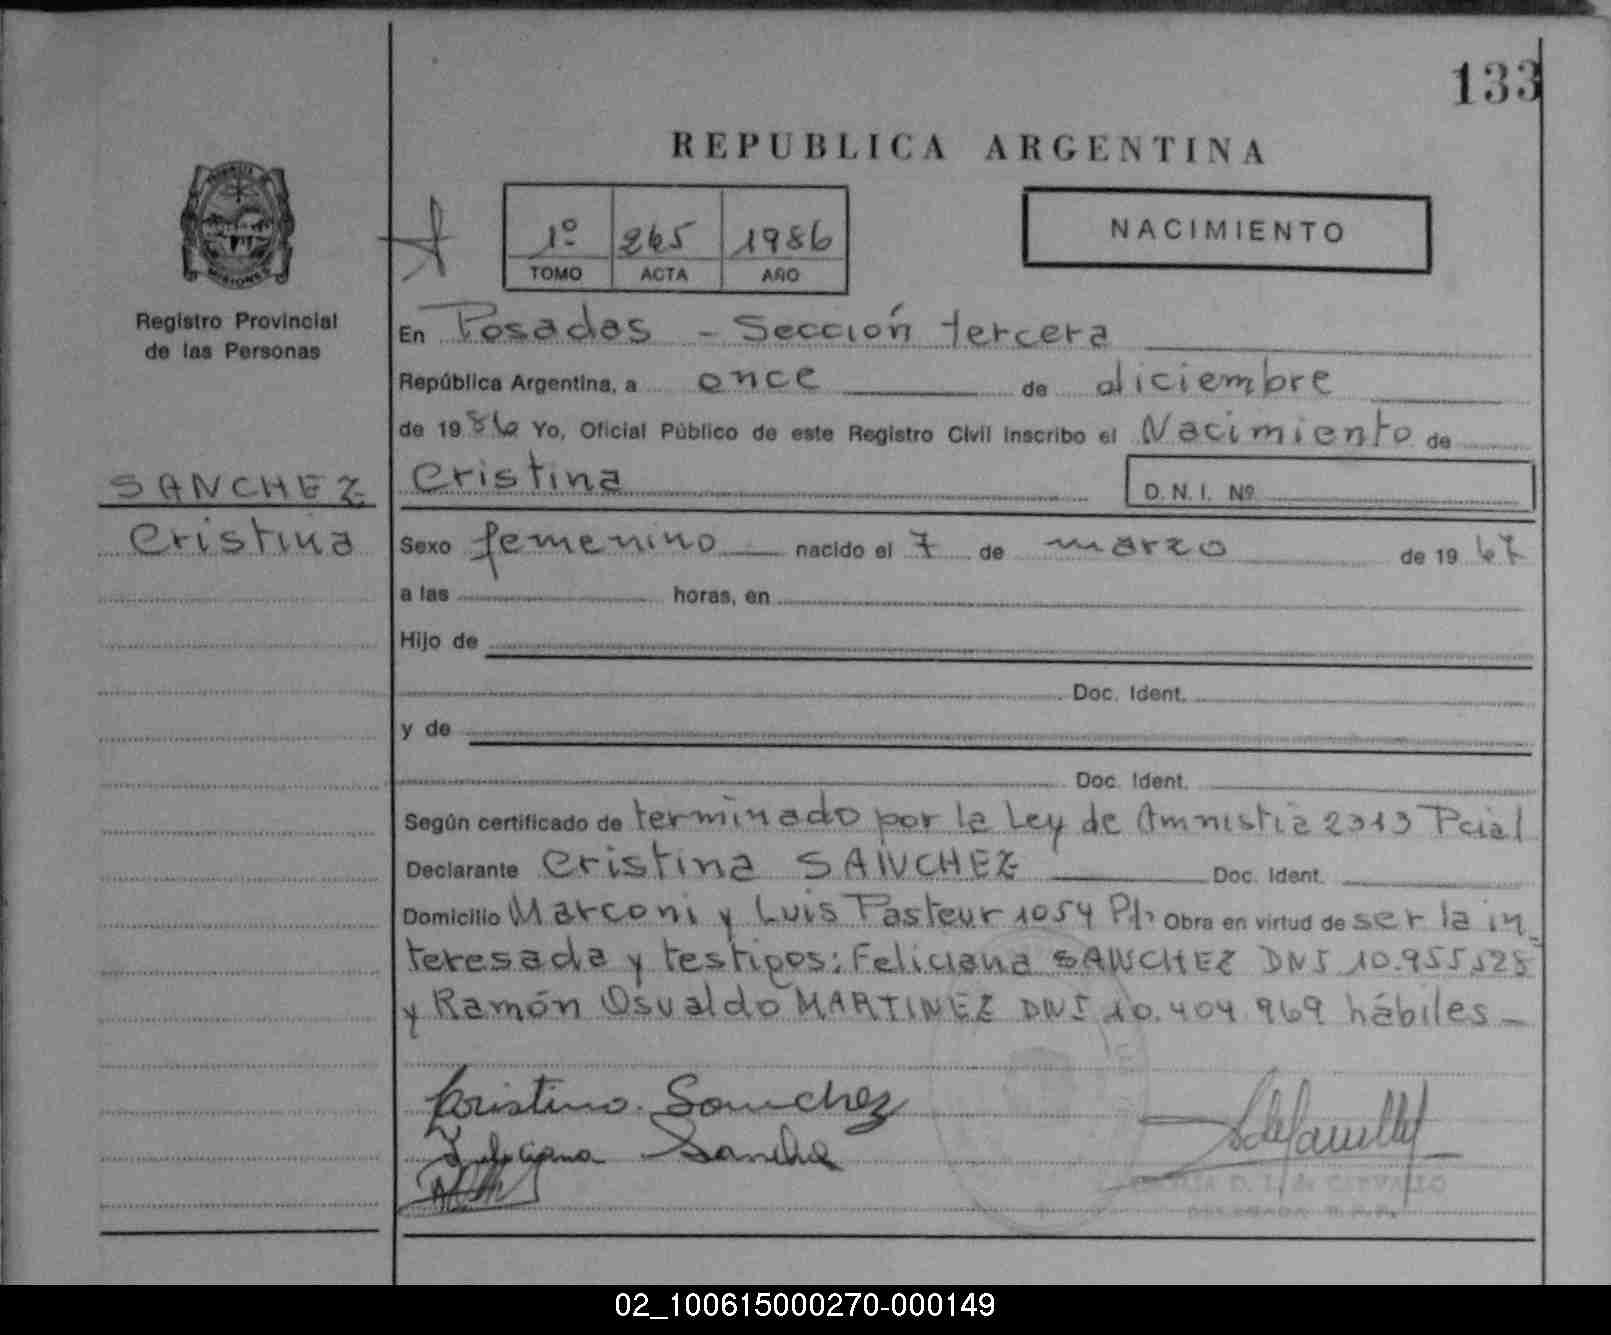 133
REPUBLICA ARGENTINA
1º 265 1986
TOMO ACTA AÑO
NACIMIENTO
MISIONES
Registro Provincial
de las Personas
En Posadas - Sección tercera
República Argentina, a once de diciembre
de 1986 Yo, Oficial Público de este Registro Civil inscribo el Nacimiento de
SANCHEZ
Cristina
Cristina
D.N.I. Nº
Sexo femenino nacido el 7 de marzo de 1967
a las horas, en
Hijo de
Doc. Ident.
y de
Doc. Ident.
Según certificado de terminado por la Ley de Amnistia 2313 Pcial
Declarante Cristina SANCHEZ Doc. Ident.
Domicilio Marconi y Luis Pasteur 1054 Obra en virtud de ser la in
teresada y testigos: Feliciana SANCHEZ DNI 10.955.525
y Ramón Osvaldo MARTINEZ DNI 10.404.969 hábiles -
Cristina Sanchez
Feliciana Sanchez
D. L. de CARVALLO
DELEGADA R.P.P.
02_100615000270-000149